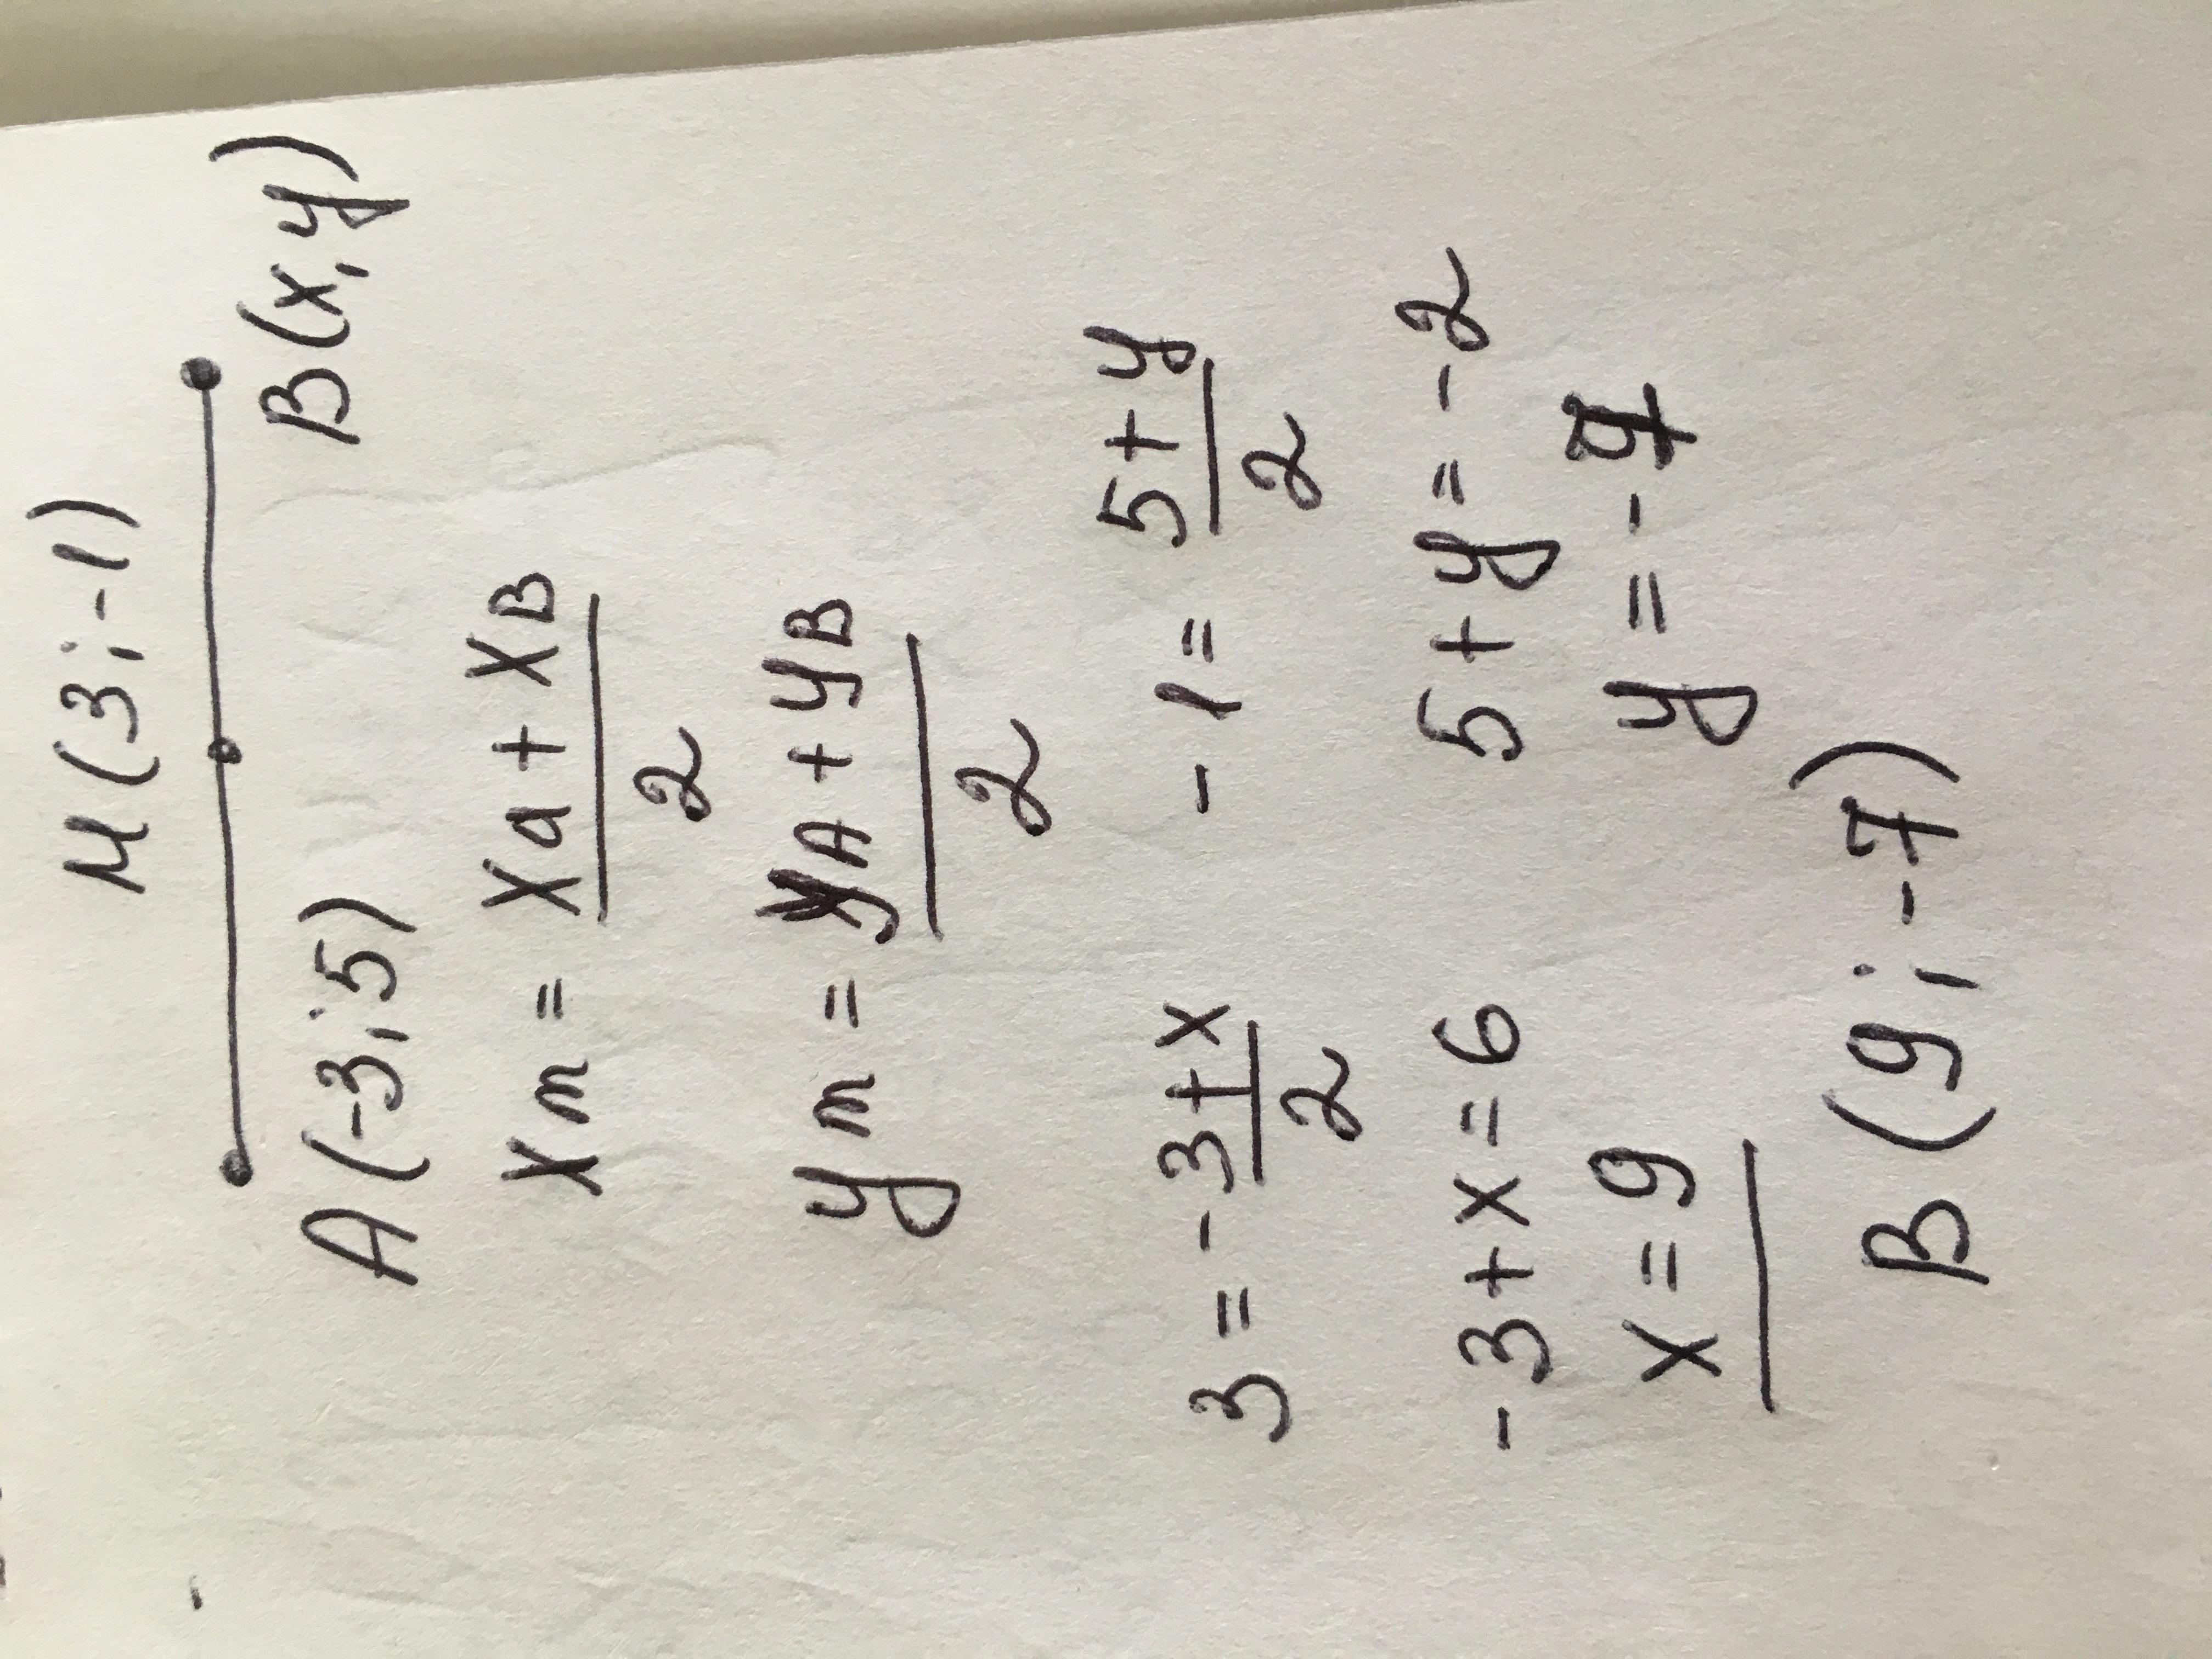 M(3;-1)
A(-3;5) B(x;y)
xm = xa + xB / 2
ym = yA + yB / 2
3 = -3+x / 2 -1 = 5+y / 2
-3+x=6 5+y=-2
x=9 y=-7
B(9;-7)